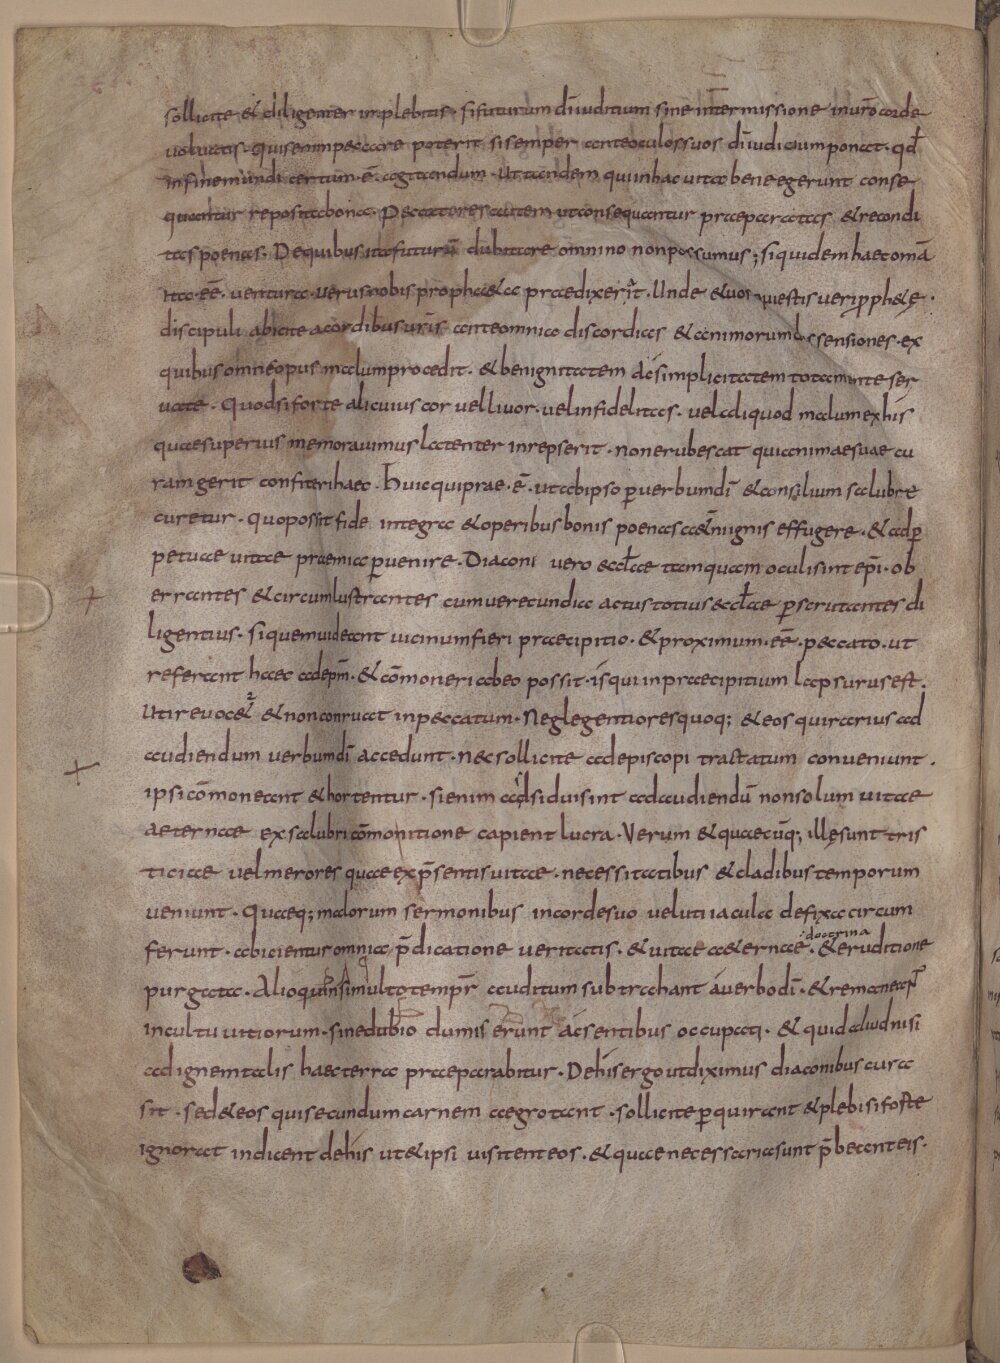 sollicite & diligenter inplebitis · si futurum dī iuditium sine intermissione in ur̄o corde
uoluatis · quis enim peccare poterit si semper ante oculos suos dī iudicium ponat · qđ
in fine mundi certum · ē · agitandum · ut tandem qui in hac uita bene egerunt conse
quantur reposita bona · Peccatores autem ut consequantur praeparatas & recondi
tas poenas · De quibus ita futurū dubitare omnino non possumus ; siquidem haec omā
ita · eē · uentura · uerus nobis proph&a praedixerit · Unde & uos qui estis ueri proph&ę ·
discipuli abicite a cordibus uris̄ ante omnia discordias & animorum dissensiones · ex
quibus omne opus malum procedit · & benignitatem ac simplicitatem tota mente ser
uate · Quod si forte alicuius cor uel liuor · uel infidelitas · uel aliquod malum ex his
quae superius memorauimus latenter inrepserit · non erubescat qui animae suae cu
ram gerit confiteri haec · Huic qui prae · ē · ut ab ipso ꝑ uerbum dī & consilium salubre
curetur · quo possit fide integra & operibus bonis poenas aet̄ni ignis effugere · & ad ꝑ
petuae uitae praemia ꝑuenire · Diaconi uero ecclae tamquam oculi sint epī · ob
errantes & circumlustrantes cum uerecundia actus totius ecclae ꝑscrutantes di
ligentius · si quem uideant uicinum fieri praecipitio · & proximum · eē · peccato · ut
referant haec ad epm̄ · & cōmoneri ab eo possit · is qui in praecipitium lapsurus est ·
Ut reuoc&ur & non conruat in peccatum · Neglegentiores quoq; & eos qui rarius ad
audiendum uerbum dī accedunt · nec sollicite ad episcopi tractatum conueniunt ·
ipsi cōmoneant & hortentur · si enim adsidui sint ad audiendū non solum uitae
aeternae ex salubri cōmonitione capient lucra · Verum & quaecūq; illę sunt tris
ticiae uel merores quae ex p̄sentis uitae · necessitatibus & cladibus temporum
ueniunt · Quaeq; malorum sermonibus in corde suo ueluti iacula defixa circum
ferunt · abicientur omnia p̄dicatione ueritatis · & uitae aeternae · doctrina & eruditione
purgata · Alioquin si multo tempr̄ auditum subtrahant a uerbo dī · & remaneant
in cultu uitiorum · sine dubio dumis erunt ac sentibus occupati · & quid aliud nisi
ad ignem talis haec terra praeparabitur · De his ergo ut diximus diaconibus cura
sit · sed & eos qui secundum carnem aegrotant · sollicite ꝑquirant & plebi si foste
ignorat indicent de his ut & ipsi uisitent eos · & quae necessaria sunt p̄beant eis ·